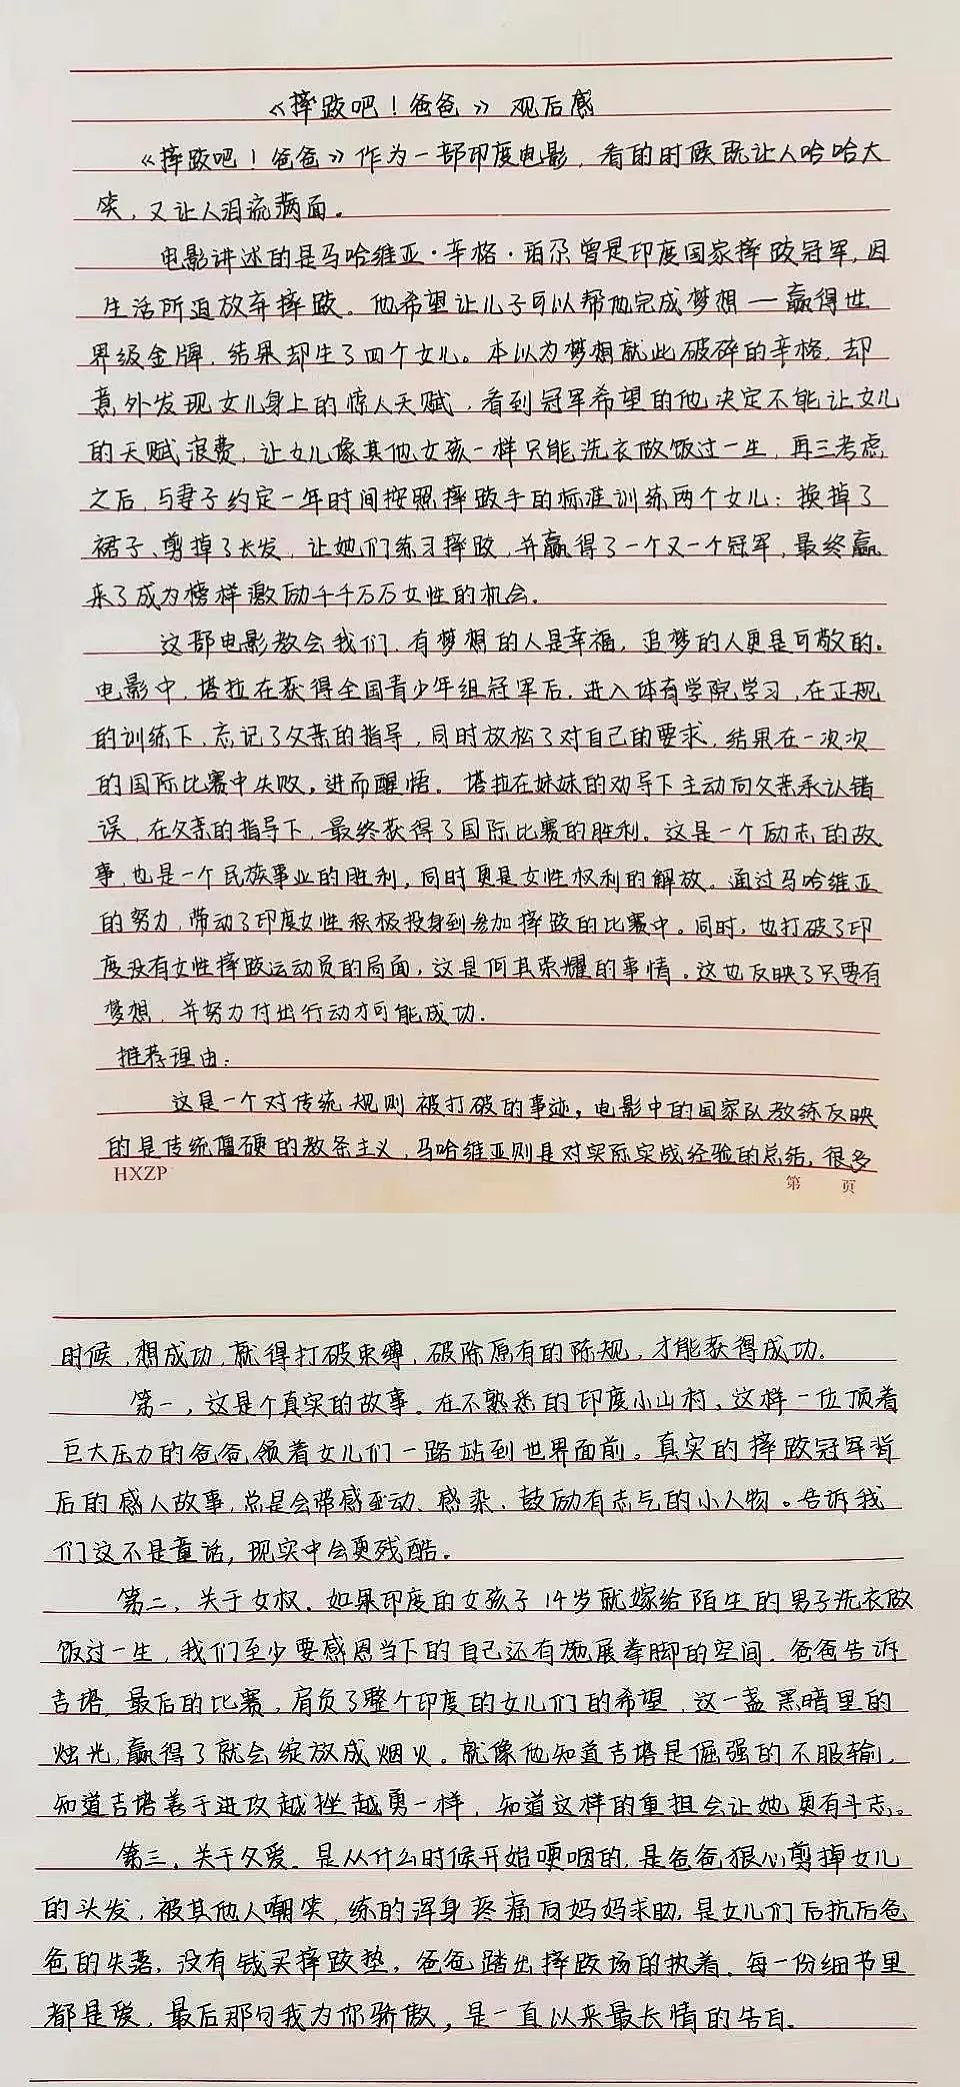 《摔跤吧！爸爸》观后感
《摔跤吧！爸爸》作为一部印度电影，看的时候既让人哈哈大
笑，又让人泪流满面。
电影讲述的是马哈维亚·辛格·珀尕曾是印度国家摔跤冠军，因
生活所迫放弃摔跤。他希望让儿子可以帮他完成梦想—赢得世
界级金牌，结果却生了四个女儿。本以为梦想就此破碎的辛格，却
意外发现女儿身上的惊人天赋，看到冠军希望的他决定不能让女儿
的天赋浪费，让女儿像其他女孩一样只能洗衣做饭过一生，再三考虑
之后，与妻子约定一年时间按照摔跤手的标准训练两个女儿：换掉了
裙子、剪掉了长发，让她们练习摔跤，并赢得了一个又一个冠军，最终赢
来了成为榜样激励千千万万女性的机会。
这部电影教会我们，有梦想的人是幸福，追梦的人更是可敬的。
电影中，塔拉在获得全国青少年组冠军后，进入体育学院学习，在正规
的训练下，忘记了父亲的指导，同时放松了对自己的要求，结果在一次次
的国际比赛中失败，进而醒悟。塔拉在妹妹的劝导下主动向父亲承认错
误，在父亲的指导下，最终获得了国际比赛的胜利。这是一个励志的故
事，也是一个民族事业的胜利，同时更是女性权利的解放。通过马哈维亚
的努力，带动了印度女性积极投身到参加摔跤的比赛中。同时，也打破了印
度没有女性摔跤运动员的局面，这是何其荣耀的事情。这也反映了只要有
梦想，并努力付出行动才可能成功.
推荐理由：
这是一个对传统规则被打破的事迹，电影中的国家队教练反映
的是传统僵硬的教条主义，马哈维亚则是对实际实战经验的总结，很多
HXZP
第 页
时候，想成功，就得打破束缚，破除原有的陈规，才能获得成功.
第一，这是个真实的故事。在不熟悉的印度小山村，这样一位顶着
巨大压力的爸爸领着女儿们一路站到世界面前。真实的摔跤冠军背
后的感人故事，总是会带感动、感染、鼓励有志气的小人物。告诉我
们这不是童话，现实中会更残酷。
第二，关于女权，如果印度的女孩子14岁就嫁给陌生的男子洗衣做
饭过一生，我们至少要感恩当下的自己还有施展拳脚的空间，爸爸告诉
吉塔，最后的比赛，肩负了整个印度的女儿们的希望，这一盏黑暗里的
烛光，赢得了就会绽放成烟火。就像他知道吉塔是倔强的不服输，
知道吉塔善于进攻越挫越勇一样，知道这样的重担会让她更有斗志。
第三，关于父爱，是从什么时候开始哽咽的，是爸爸狠心剪掉女儿
的头发，被其他人嘲笑，练的浑身疼痛向妈妈求助，是女儿们后抗后爸
爸的失落，没有钱买摔跤垫，爸爸踏出摔跤场的执着，每一份细节里
都是爱，最后那句我为你骄傲，是一直以来最长情的告白.